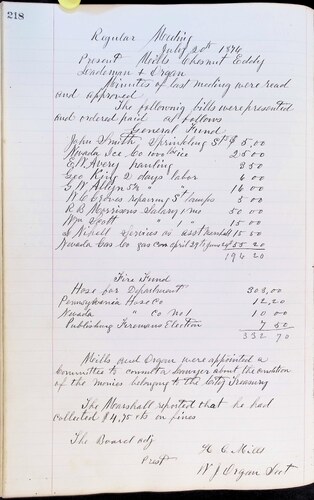 218
Regular Meeting
July 20th 1876
Present Mills Chesnut Eddy
Lindeman & Organ
Minutes of last meeting were read
and approved
The following bills were presented
and ordered paid as follows
General Fund
John Smith Sprinkling St $ 5,00
Nevada Ice Co ice 25 00
E.W. Avery hauling 3 50
Geo King 2 days labor 6 00
G.W. " " 16 00
W.C. Groves repairing St lamps 5 00
R B Morrisons Salary 1 mo 50 00
Wm Scott " 1 " 15 00
Services as asst Marshall 15 50
Nevada Gas Co gas 55 20
196 20
Fire Fund
Hose for Department 303,00
Pennsylvania Hose Co 12,20
Nevada " Co No 1 10 00
Publishing Firemans Election 7 50
332 70
Mills and Organ were appointed a
Committee to consult a lawyer about the condition
of the monies belonging to the City Treasury
The Marshall reported that he had
collected $4,75 cts on fines
The Board adj
H C Mills
Prest
W J Organ Sect